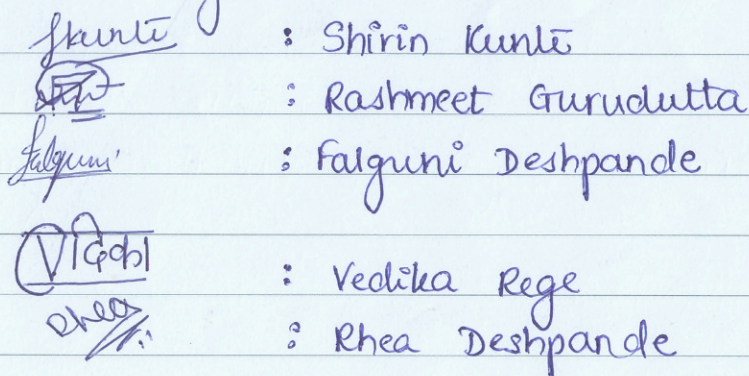 Skunte : Shirin Kunte
: Rashmeet Gurudutta
Falguni : Falguni Deshpande
Vदिका : Vedika Rege
Rhea : Rhea Deshpande